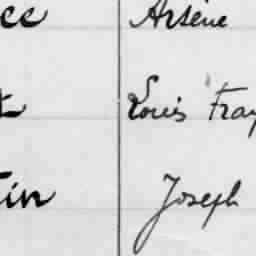 ee Arsène
t Louis Fran
tin Joseph